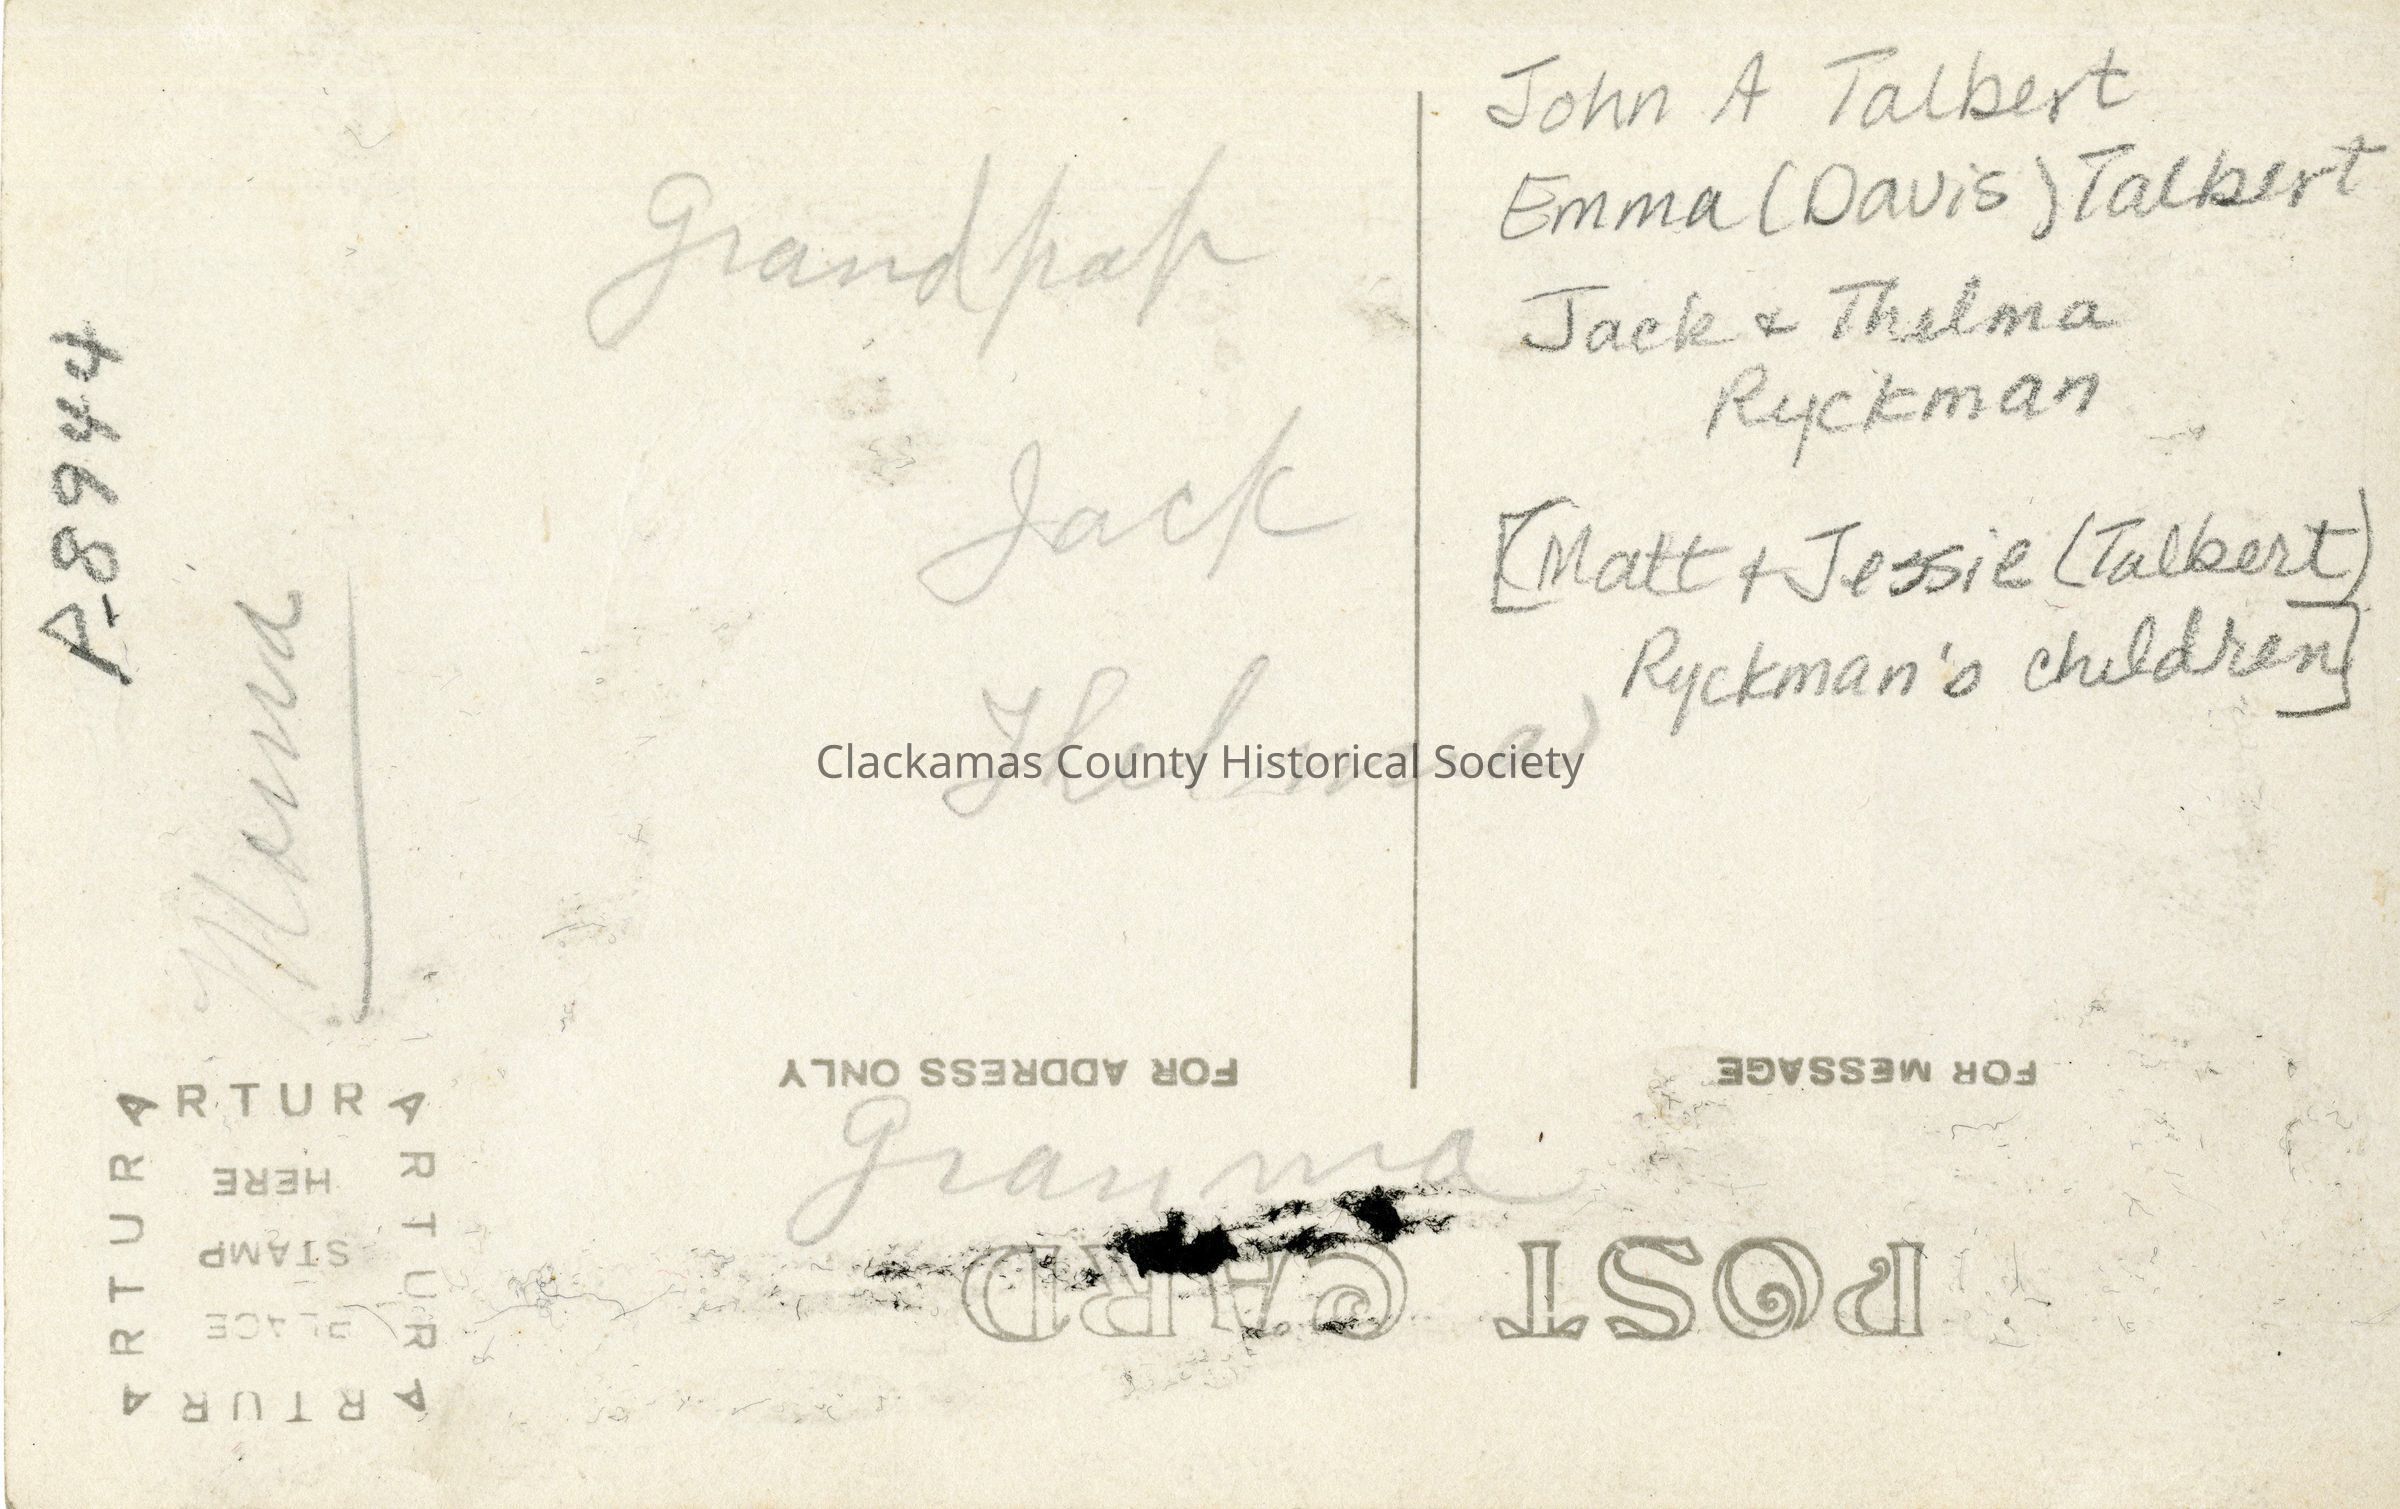 John A Talbert
Emma (Davis) Talbert
Jack & Thelma
Ryckman
[(Matt + Jessie (Talbert)
Ryckman's children]
Grandpap
Jack
Thelma
Granma
P-8944
Clackamas County Historical Society
FOR ADDRESS ONLY
FOR MESSAGE
POST CARD
PLACE
STAMP
HERE
ARTURA
ARTURA
ARTURA
ARTURA